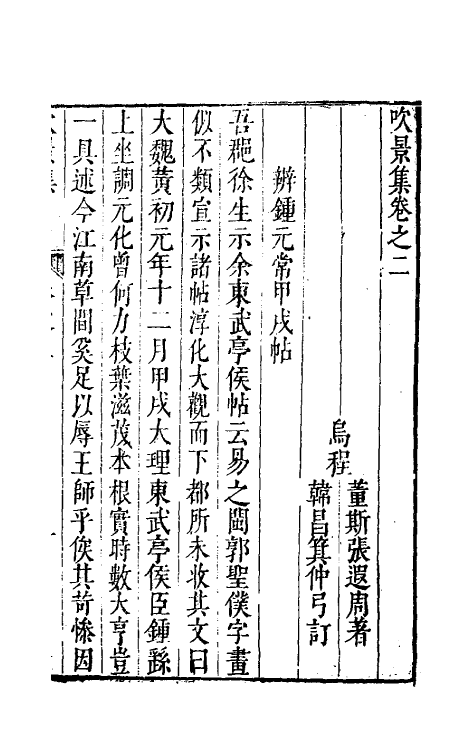 吹景集卷之二
烏程
董斯張遐周著
韓昌箕仲弓訂
辨鍾元常甲戌帖
吾郶徐生示余東武亭侯帖云易之閶郭聖僕字畫
似不類宣示諸帖淳化大觀而下都所未收其文曰
大魏黃初元年十二月甲戌大理東武亭侯臣鍾繇
上坐調元化曾何力枝葉滋茂本根實時數大亨豈
一具述今江南草間奚足以辱王師乎俟其苛慘因
吹景集